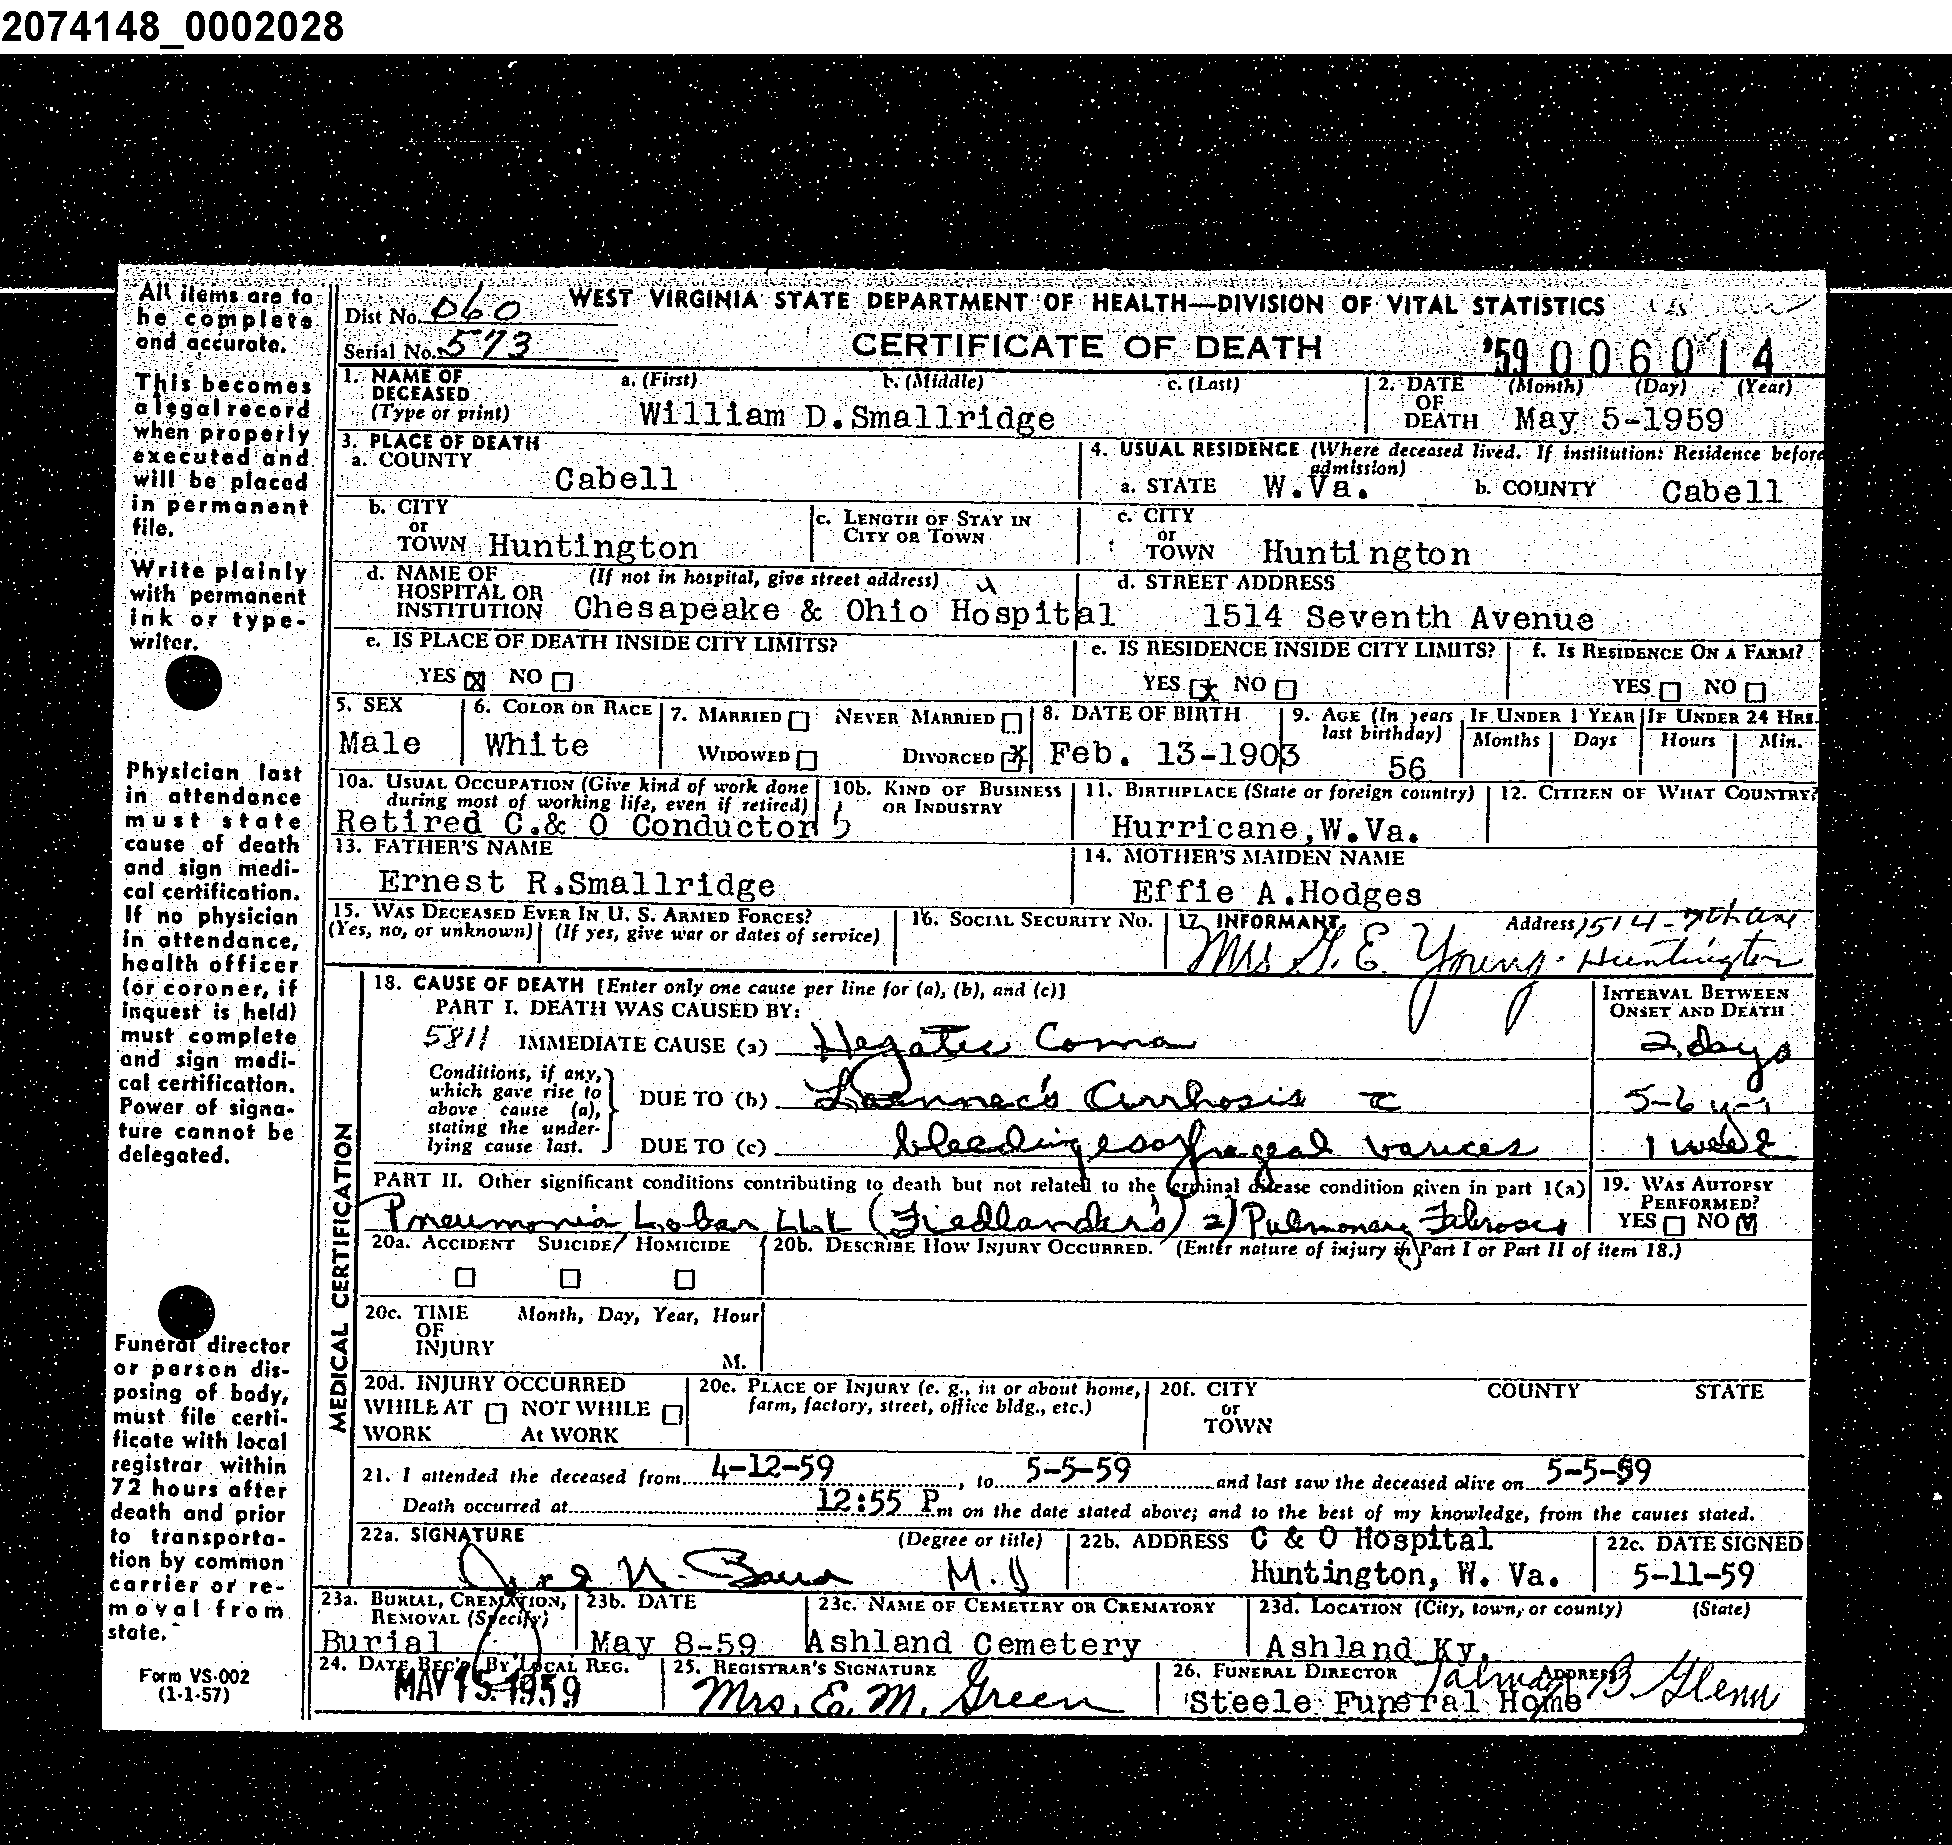 2074148_0002028
All items are to be complete and accurate.
This becomes a legal record when properly executed and will be placed in permanent file.
Write plainly with permanent ink or typewriter.
Physician last in attendance must state cause of death and sign medical certification. If no physician in attendance, health officer (or coroner, if inquest is held) must complete and sign medical certification. Power of signature cannot be delegated.
Funeral director or person disposing of body, must file certificate with local registrar within 72 hours after death and prior to transportation by common carrier or removal from state.
Form VS-002
(1-1-57)
Dist No. 060
WEST VIRGINIA STATE DEPARTMENT OF HEALTH—DIVISION OF VITAL STATISTICS
Serial No. 573
CERTIFICATE OF DEATH
'59 006014
1. NAME OF DECEASED (Type or print) a. (First) b. (Middle) c. (Last)
William D.Smallridge
2. DATE OF DEATH (Month) (Day) (Year)
May 5-1959
3. PLACE OF DEATH
a. COUNTY Cabell
4. USUAL RESIDENCE (Where deceased lived. If institution: Residence before admission)
a. STATE W.Va. b. COUNTY Cabell
b. CITY or TOWN Huntington
c. LENGTH OF STAY IN CITY OR TOWN
c. CITY or TOWN Huntington
d. NAME OF HOSPITAL OR INSTITUTION (If not in hospital, give street address)
Chesapeake & Ohio Hospital
d. STREET ADDRESS
1514 Seventh Avenue
e. IS PLACE OF DEATH INSIDE CITY LIMITS?
YES X NO
e. IS RESIDENCE INSIDE CITY LIMITS?
YES X NO
f. IS RESIDENCE ON A FARM?
YES NO
5. SEX
Male
6. COLOR OR RACE
White
7. MARRIED NEVER MARRIED
WIDOWED DIVORCED X
8. DATE OF BIRTH
Feb. 13-1903
9. AGE (In years last birthday)
56
IF UNDER 1 YEAR
Months Days
IF UNDER 24 HRS.
Hours Min.
10a. USUAL OCCUPATION (Give kind of work done during most of working life, even if retired)
Retired C.& O Conductor
10b. KIND OF BUSINESS OR INDUSTRY
11. BIRTHPLACE (State or foreign country)
Hurricane,W.Va.
12. CITIZEN OF WHAT COUNTRY?
13. FATHER'S NAME
Ernest R.Smallridge
14. MOTHER'S MAIDEN NAME
Effie A.Hodges
15. WAS DECEASED EVER IN U. S. ARMED FORCES?
(Yes, no, or unknown) (If yes, give war or dates of service)
16. SOCIAL SECURITY NO.
17. INFORMANT Address 1514-7th Ave
Mrs G. E. Young. Huntington
MEDICAL CERTIFICATION
18. CAUSE OF DEATH [Enter only one cause per line for (a), (b), and (c)]
PART I. DEATH WAS CAUSED BY:
INTERVAL BETWEEN ONSET AND DEATH
5811 IMMEDIATE CAUSE (a) Hepatic Coma 2 days
Conditions, if any, which gave rise to above cause (a), stating the underlying cause last.
DUE TO (b) Laennec's Cirrhosis c 5-6 yrs
DUE TO (c) bleeding esophageal varices 1 week
PART II. Other significant conditions contributing to death but not related to the terminal disease condition given in part 1(a)
Pneumonia Lobar LLL (Friedlander's) 2) Pulmonary Fibrosis
19. WAS AUTOPSY PERFORMED?
YES NO X
20a. ACCIDENT SUICIDE HOMICIDE
20b. DESCRIBE HOW INJURY OCCURRED. (Enter nature of injury in Part I or Part II of item 18.)
20c. TIME OF INJURY Month, Day, Year, Hour
M.
20d. INJURY OCCURRED
WHILE AT WORK NOT WHILE At WORK
20e. PLACE OF INJURY (e. g., in or about home, farm, factory, street, office bldg., etc.)
20f. CITY or TOWN COUNTY STATE
21. I attended the deceased from 4-12-59, to 5-5-59 and last saw the deceased alive on 5-5-59
Death occurred at 12:55 P.m on the date stated above; and to the best of my knowledge, from the causes stated.
22a. SIGNATURE (Degree or title)
M.D
22b. ADDRESS C & O Hospital
Huntington, W. Va.
22c. DATE SIGNED
5-11-59
23a. BURIAL, CREMATION, REMOVAL (Specify)
Burial
23b. DATE
May 8-59
23c. NAME OF CEMETERY OR CREMATORY
Ashland Cemetery
23d. LOCATION (City, town, or county) (State)
Ashland Ky.
24. DATE REC'D BY LOCAL REG.
MAY 15 1959
25. REGISTRAR'S SIGNATURE
Mrs. E. M. Green
26. FUNERAL DIRECTOR ADDRESS
Steele Funeral Home
B. Glenn